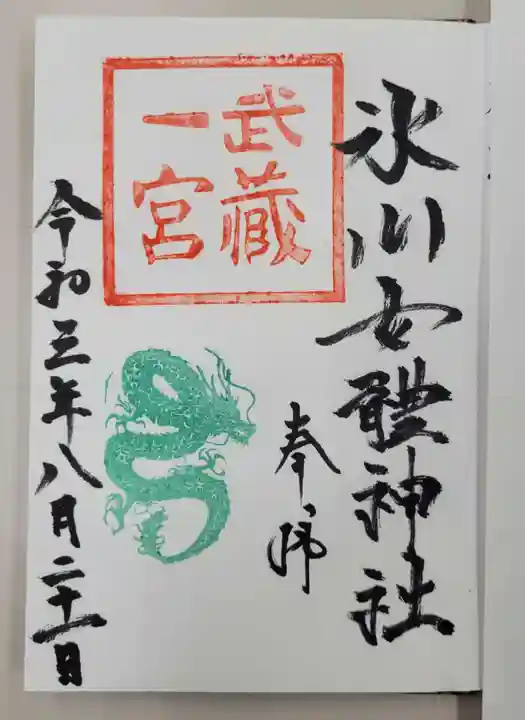 氷川女體神社
奉拝
武蔵
一宮
令和三年八月二十一日